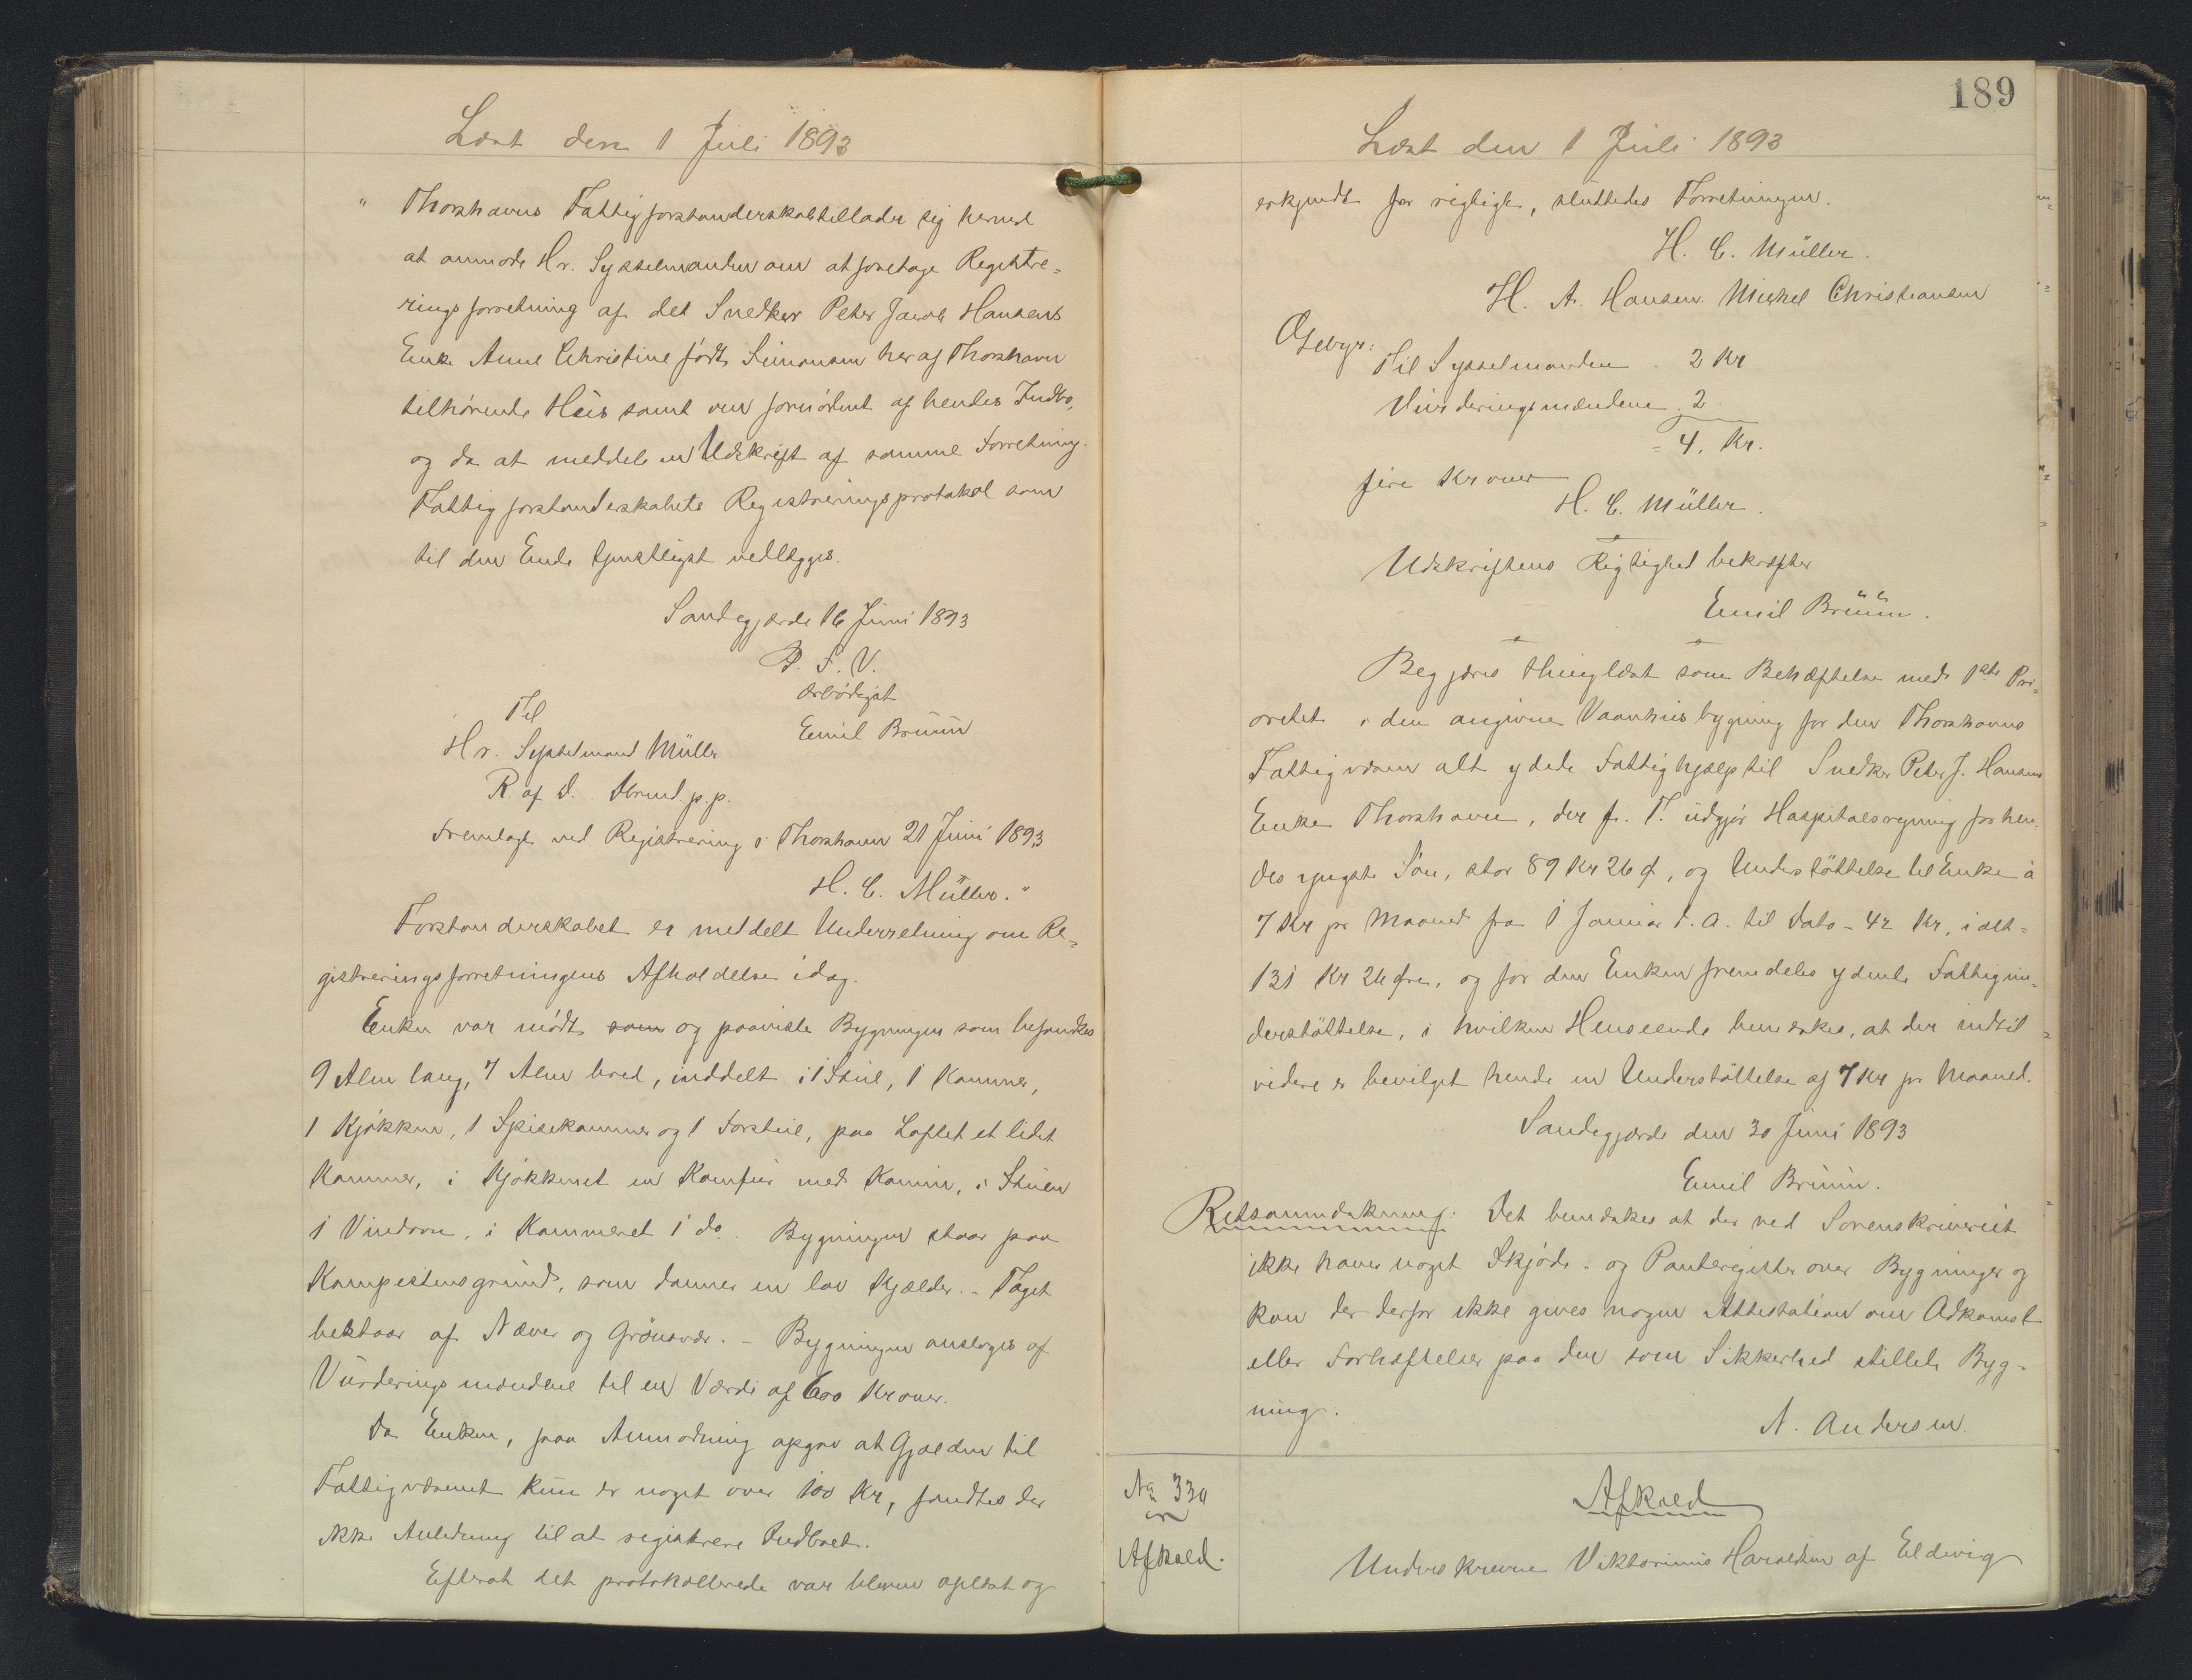 Læst den 1 Juli 1893
" Thorshavns Fattigforstanderskab tillader sig herved
at anmode Hr. Sysselmanden om at foretage Registre=
ringsforretning af det Snedker Peter Jacob Hansens
Enke Anne Christine født Simonsen her af Thorshavn
tilhørende Huus samt om fornødent af hendes Indbo,
og da at meddele en Udskrift af samme Forretning.
Fattigforstanderskabets Registreringsprotokol som
til den Ende tjenstligst vedlægges.
Sandegjærde 16 Juni 1893
P. F. V.
ærbødigst
Emil Bruun
Til
Hr. Sysselmand Müller
R. af D. Dbrmd. p.p.
Fremlagt ved Registrering i Thorshavn 21 Juni 1893
H. C. Müller."
Forstanderskabet er meddelt Underretning om Re=
gistreringsforretningens Afholdelse idag.
Enken var mødt som og paaviste Bygningen som befandtes
9 Alen lang, 7 Alen bred, inddelt i 1 Stue, 1 Kammer,
1 Kjøkken, 1 Spisekammer og 1 Forstue, paa Loftet et lidet
Kammer, i Kjøkkenet en Komfur med Kamin, i Stuen
1 Vindovn, i Kammeret 1 do. Bygningen staar paa
Kampestensgrund, som danner en lav Kjælder. - Taget
bestaar af Næver og Grønsvær. - Bygningen ansloges af
Vurderingsmændene til en Værdi af 600 Kroner.
Da Enken, paa Anmodning opgav at Gjælden til
Fattigvæsenet kun er noget over 100 Kr, fandtes der
ikke Anledning til at registrere Indboet.
Efterat det protokollerede var bleven oplæst og
189
Læst den 1 Juli 1893
erkjendt for rigtigt, sluttedes Forretningen.
H. C. Müller.
H. A. Hansen. Michel Christiansen
Gebyr:
Til Sysselmanden . 2 Kr
Vurderingsmændene . 2
= 4. Kr.
fire Kroner
H. C. Müller.
Udskriftens Rigtighed bekræfter
Emil Bruun.
Begjæres thinglæst som Behæftelse med 1ste Pri=
oritet i den angivne Vaanhusbygning for den Thorshavns
Fattigvæsen alt ydede Fattighjælp til Snedker Peter J. Hansens
Enke Thorshavn, der p. T. udgjør Hospitalsregning for hen=
des yngste Søn, stor 89 Kr 26 Ø, og Understøttelse til Enken à
7 Kr pr Maaned fra 1 Januar d. A. til Dato - 42 Kr, i alt =
131 Kr 26 Øre, og for den Enken fremdeles ydende Fattigun=
derstøttelse, i hvilken Henseende bemærkes, at der indtil=
videre er bevilget hende en Understøttelse af 7 Kr pr Maaned.
Sandegjærde den 30 Juni 1893
Emil Bruun.
Retsanmærkning: Det bemærkes at der ved Sorenskriveriet
ikke haves noget Skjøde- og Panteregister over Bygninger og
kan der derfor ikke gives nogen Attestation om Adkomst
eller Forhæftelser paa den som Sikkerhed stillede Byg=
ning.
N. Andersen.
No 330
Afkald.
Afkald
Underskrevne Viktorinus Haraldsen af Eldevig